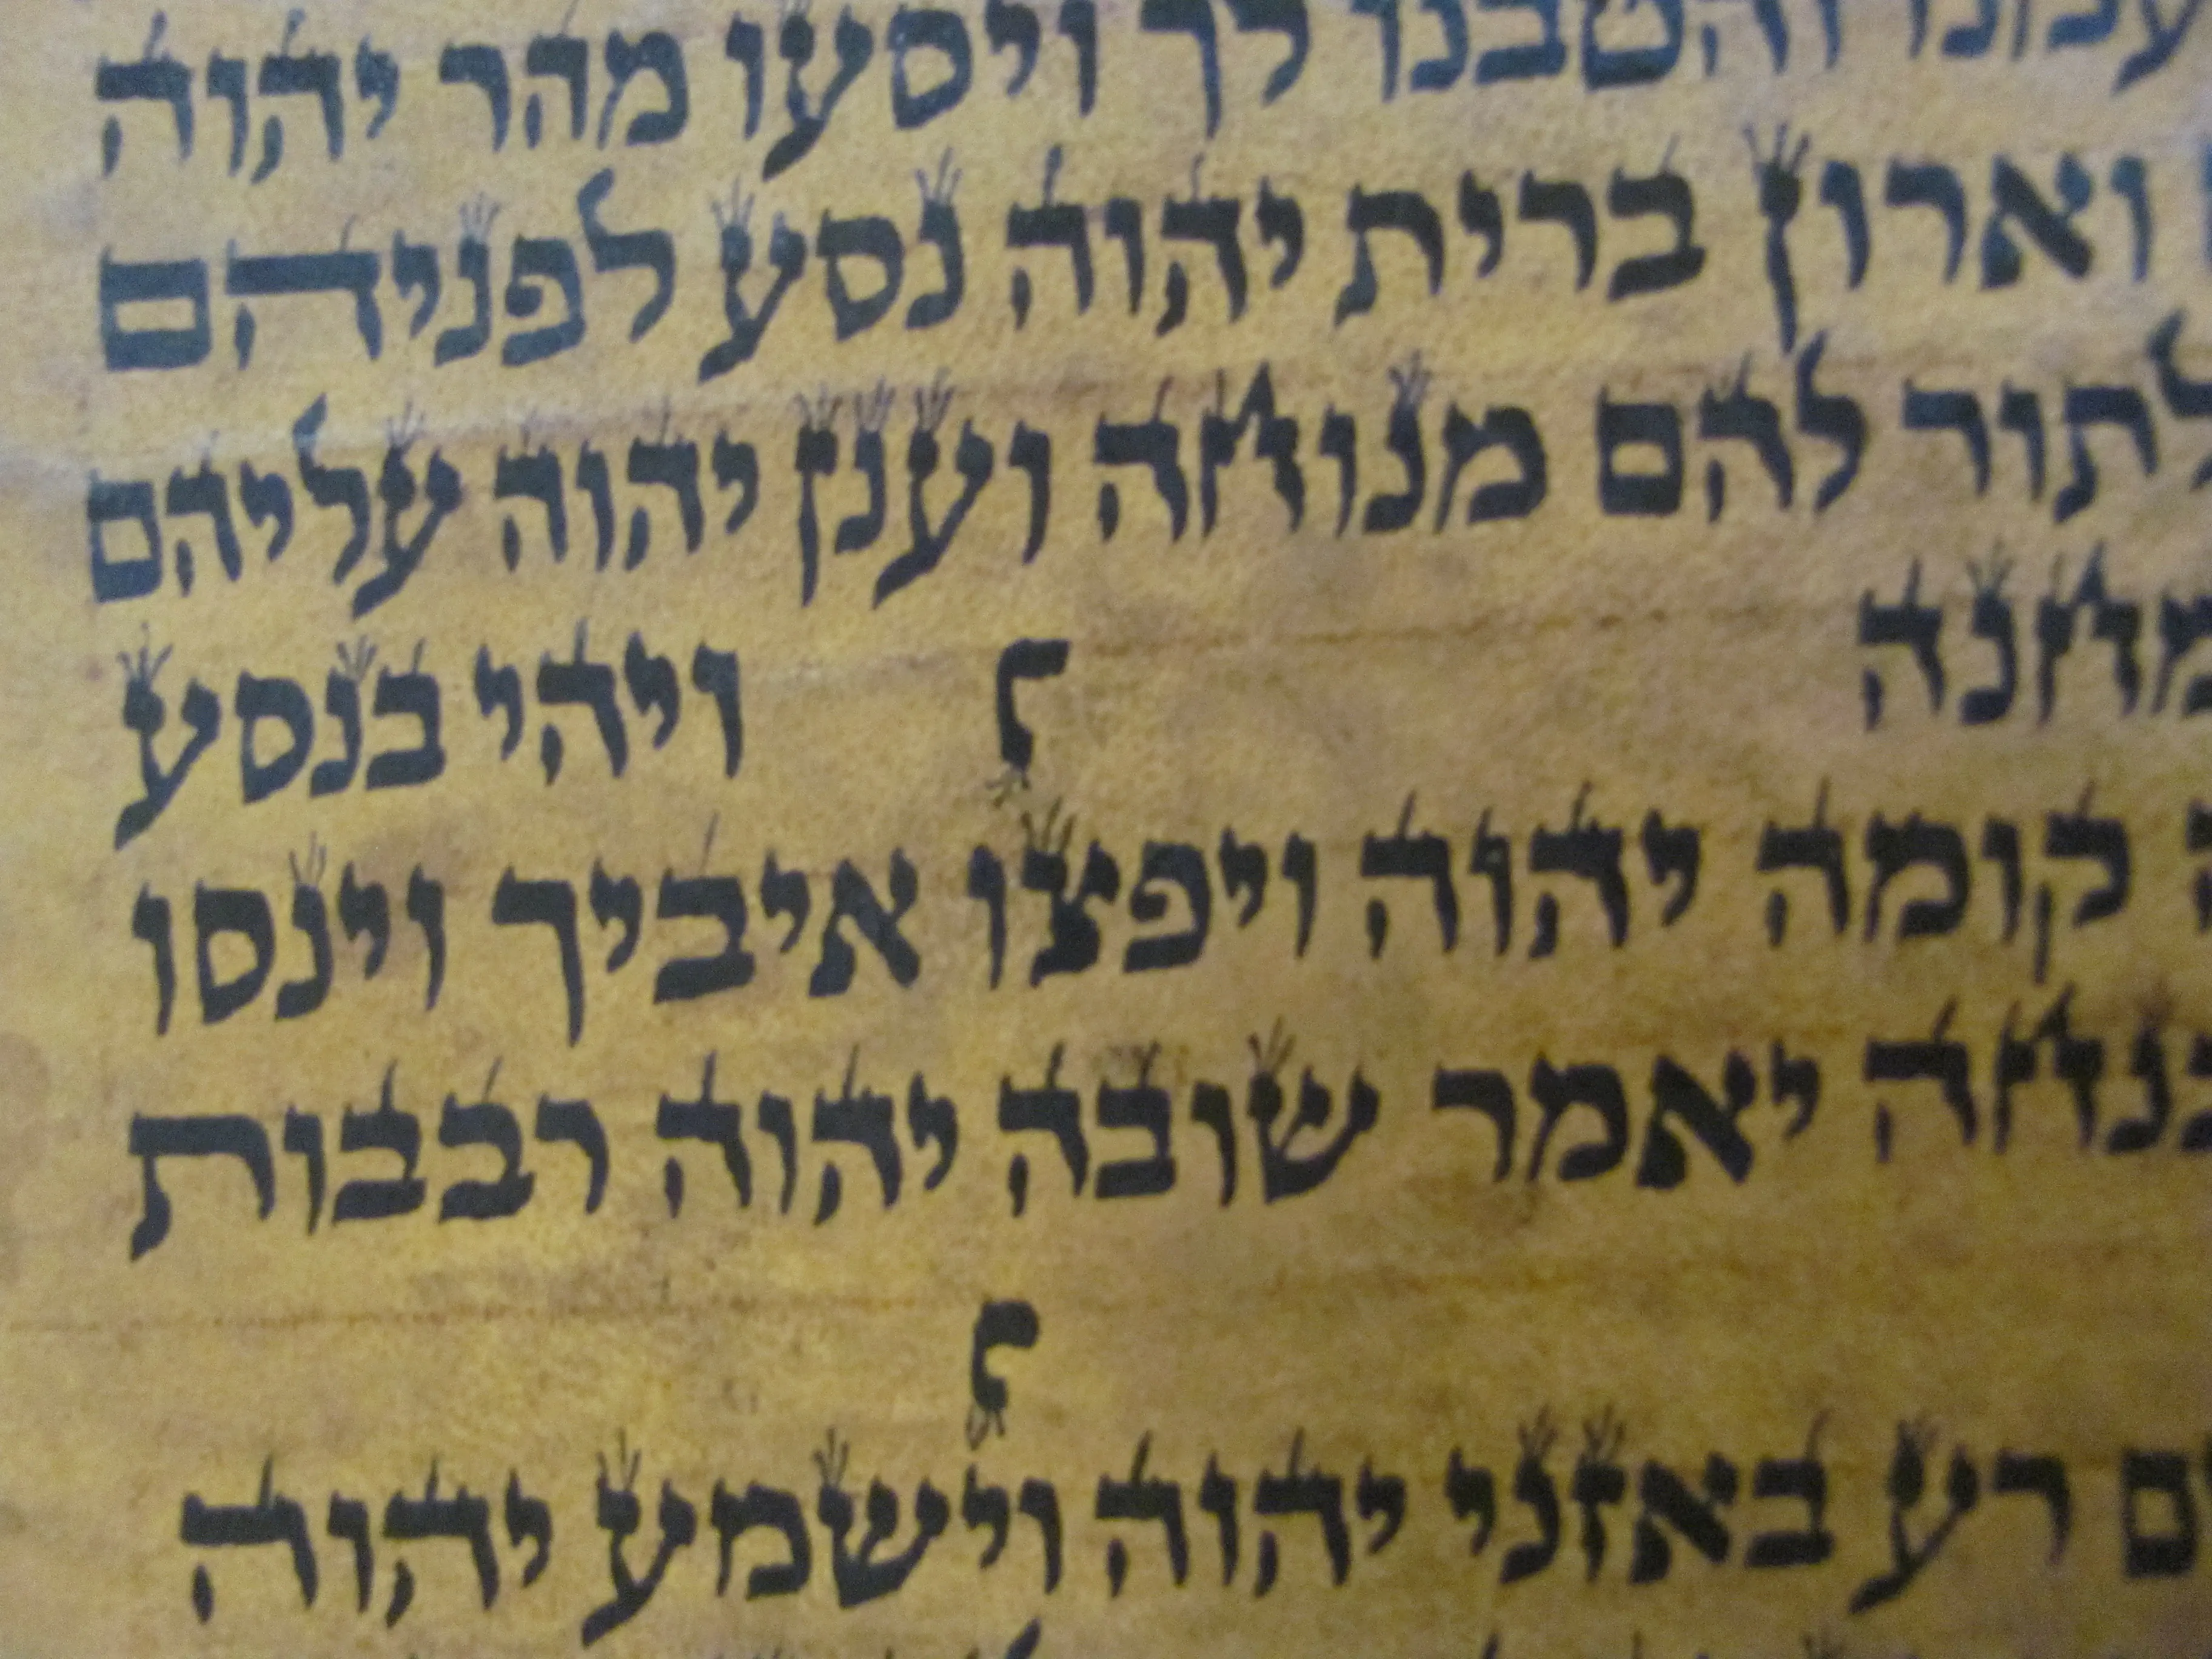 והטבנו לך ויסעו מהר יהוה
וארון ברית יהוה נסע לפניהם
לתור להם מנוחה וענן יהוה עליהם
׆ ויהי בנסע
קומה יהוה ויפצו איביך וינסו
יאמר שובה יהוה רבבות
׆
רע באזני יהוה וישמע יהוה